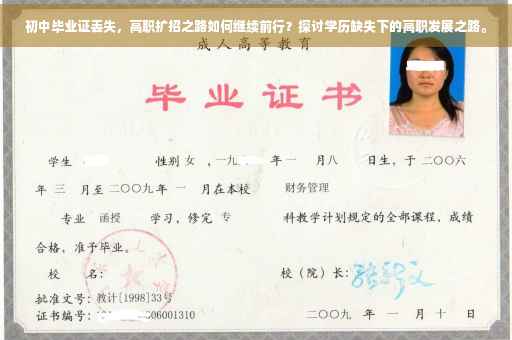 初中毕业证丢失，高职扩招之路如何继续前行？探讨学历缺失下的高职发展之路。
成人高等教育
毕业证书
学生 性别 女 ，一九 年 一 月八 日生，于 二〇〇六
年 三 月至 二〇〇九 年 一 月在本校 财务管理
专业 函授 学习，修完 专 科教学计划规定的全部课程，成绩
合格，准予毕业。
校 名： 校（院）长：
批准文号：教计[1998]33号
证书编号： 06001310 二〇〇九 年 一 月 十 日